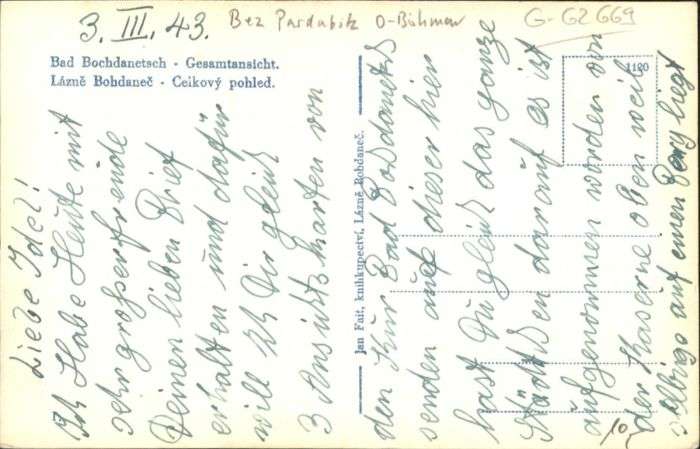 3. III. 43.
Bez Pardubitz O-Böhmen
G-G2669
Bad Bochdanetsch - Gesamtansicht.
Lázně Bohdaneč - Celkový pohled.
1180
Jan Fait, knihkupectví, Lázně Bohdaneč.
Liebe Idel!
Ich Habe Heute mit
sehr grosser freude
Deinen lieben Brief
erhalten und dafür
will ich Dir gleich
3 Ansichtskarten von
den Kur Bad Bohdanetsch
senden auf dieser hier
hast Du gleich das ganze
Städtchen darauf es ist
aufgenommen worden von
der Kaserne oben weil
selbige auf einen Berg liegt
10